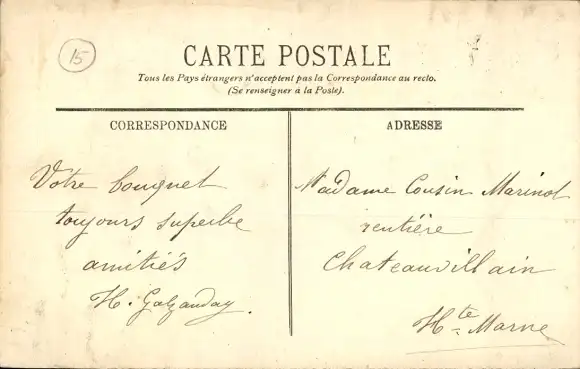 15
CARTE POSTALE
Tous les Pays étrangers n'acceptent pas la Correspondance au recto.
(Se renseigner à la Poste).
CORRESPONDANCE
Votre bouquet
toujours superbe
amitiés
H.
ADRESSE
Madame Cousin Marinot
rentière
Chateauvillain
Hte Marne